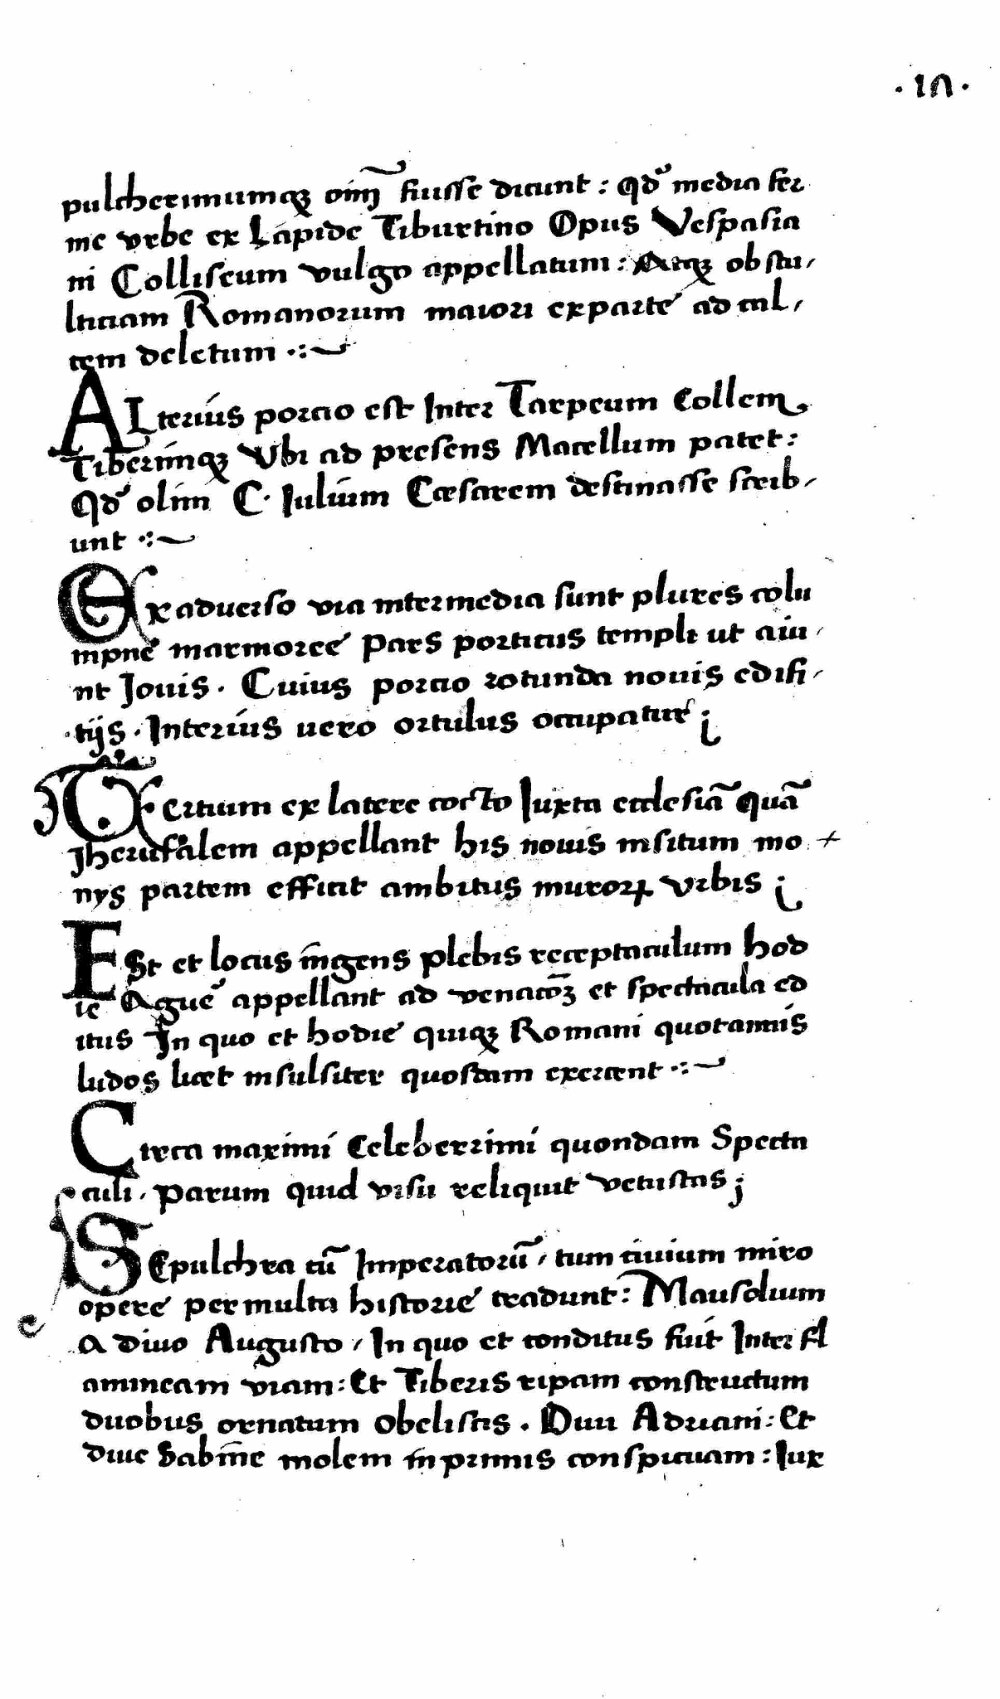 · 17 ·
pulcherimumqꝫ oīm̄ fuisse dicunt : Qd̓ media fer
me vrbe ex Lapide Tiburtino Opus Vespasia
ni Colliseum vulgo appellatum : Atqꝫ ob stu/
lticiam Romanorum maiori exparte ad cal/
cem deletum ·:~
ALterius porcio est Inter Tarpeum Collem
Tiberimqꝫ Vbi ad presens Macellum patet :
Qd̓ olim C· Iulium Cæsarem destinasse scrib/
unt ·:~
Ex aduerso via intermedia sunt plures colu
mpne marmoree Pars porticus templi ut aiu/
nt Jouis · Cuius porcio rotunda nouis edifi/
·tijs · Interius uero ortulus occupatur ;
Tertium ex latere cocto Iuxta ecclesiā quā
Jherusalem appellant his nouis insitum mo +
nys partem efficit ambitus muroꝝ vrbis ;
ESt et locus īngens plebis receptaculum hod
ie Ague appellant ad venacōꝫ et spectacula ed
itus In quo et hodie quiqꝫ Romani quotannis
ludos licet insulsiter quosdam exercent ·:~
Circa maximi Celeberrimi quondam Specta
culi / Parum quid visu reliquit vetustas ;
SEpulchra tū Imperatorū / tum ciuium miro
opere permulta historie tradunt : Mausolium
A diuo Augusto / In quo et conditus fuit Inter fl
amineam viam : Et Tiberis ripam constructum
duobus ornatum obeliscis . Diui Adriani : Et
diue Sabīne molem īn primis conspicuam : Iux